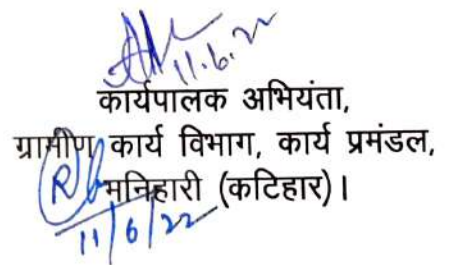 11.6.22
कार्यपालक अभियंता,
ग्रामीण कार्य विभाग, कार्य प्रमंडल,
मनिहारी (कटिहार)।
R
11/6/22